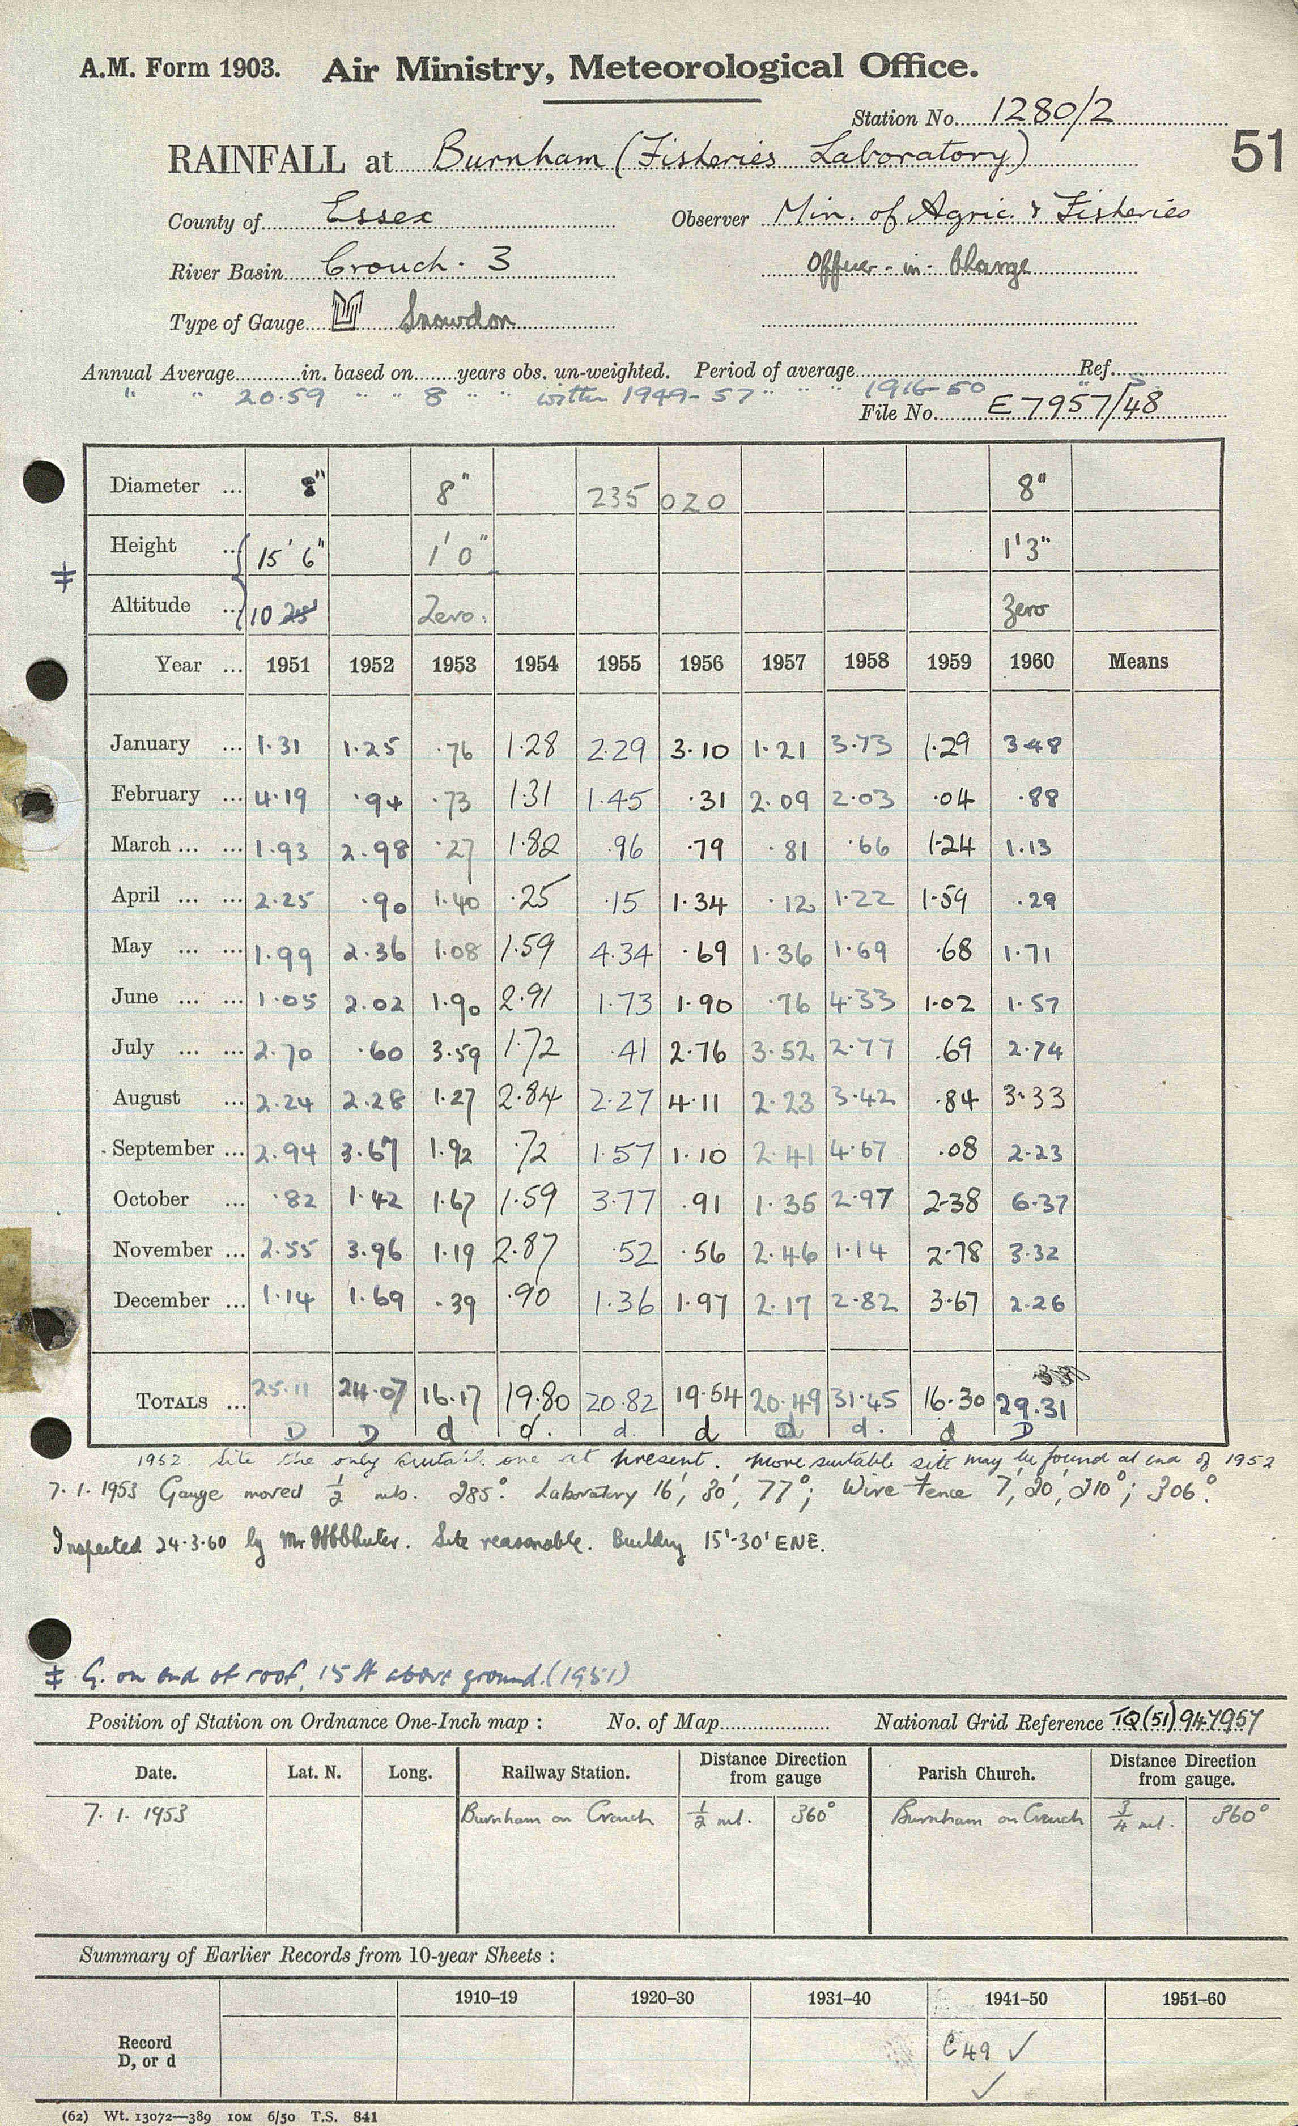 A.M. Form 1903. Air Ministry, Meteorological Office.
Station No. 1280/2
51
RAINFALL at Burnham (Fisheries Laboratory)
County of Essex Observer Min. of Agric. & Fisheries
River Basin Crouch. 3 Officer-in-Charge
Type of Gauge Snowdon
Annual Average in. based on years obs. un-weighted. Period of average Ref.
" " 20.59 " " 8 " " within 1949-57 " " " 1916-50 "
File No. E7957/48
Diameter ... 8" 8" 235 020 8"
Height .. 15' 6" 1' 0" 1'3"
‡
Altitude .. 10 25 Zero. Zero
Year ... 1951 1952 1953 1954 1955 1956 1957 1958 1959 1960 Means
January ... 1.31 1.25 .76 1.28 2.29 3.10 1.21 3.73 1.29 3.48
February ... 4.19 .94 .73 1.31 1.45 .31 2.09 2.03 .04 .88
March ... ... 1.93 2.98 .27 1.82 .96 .79 .81 .66 1.24 1.13
April ... ... 2.25 .90 1.40 .25 .15 1.34 .12 1.22 1.59 .29
May ... ... 1.99 2.36 1.08 1.59 4.34 .69 1.36 1.69 .68 1.71
June ... ... 1.05 2.02 1.90 2.91 1.73 1.90 .76 4.33 1.02 1.57
July ... ... 2.70 .60 3.59 1.72 .41 2.76 3.52 2.77 .69 2.74
August ... 2.24 2.28 1.27 2.84 2.27 4.11 2.23 3.42 .84 3.33
September ... 2.94 3.67 1.92 .72 1.57 1.10 2.41 4.67 .08 2.23
October ... .82 1.42 1.67 1.59 3.77 .91 1.35 2.97 2.38 6.37
November ... 2.55 3.96 1.19 2.87 .52 .56 2.46 1.14 2.78 3.32
December ... 1.14 1.69 .39 .90 1.36 1.97 2.17 2.82 3.67 2.26
TOTALS ... 25.11 24.07 16.17 19.80 20.82 19.54 20.49 31.45 16.30 29.31
D D d d. d. d d d. d D
1952 Site the only suitable one at present. More suitable site may be found at end of 1952
7.1.1953 Gauge moved ½ ml. 285°. Laboratory 16', 30', 77°; Wire Fence 7', 20', 210°; 306°.
Inspected 24.3.60 by Mr. Site reasonable. Building 15'-30' ENE.
‡ G. on end of roof, 15 ft above ground. (1951)
Position of Station on Ordnance One-Inch map : No. of Map National Grid Reference TQ(51)947957
Date. Lat. N. Long. Railway Station. Distance Direction from gauge Parish Church. Distance Direction from gauge.
7.1.1953 Burnham on Crouch ½ ml. 360° Burnham on Crouch ¾ ml. 360°
Summary of Earlier Records from 10-year Sheets :
1910–19 1920–30 1931–40 1941–50 1951–60
Record
D, or d
C 49 ✓
✓
(62) Wt. 13072—389 10M 6/50 T.S. 841